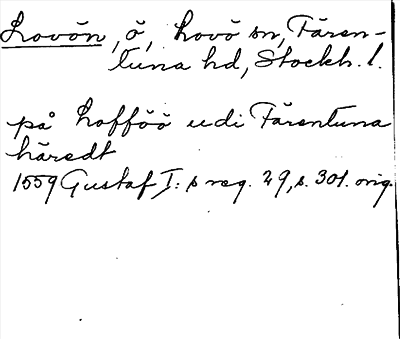 Lovön, ö, Lovö sn, Fären-
tuna hd, Stockh. l.
på Lofföö udi Färentuna
häredt
1559 Gustaf I:s reg. 29, s. 301. orig.